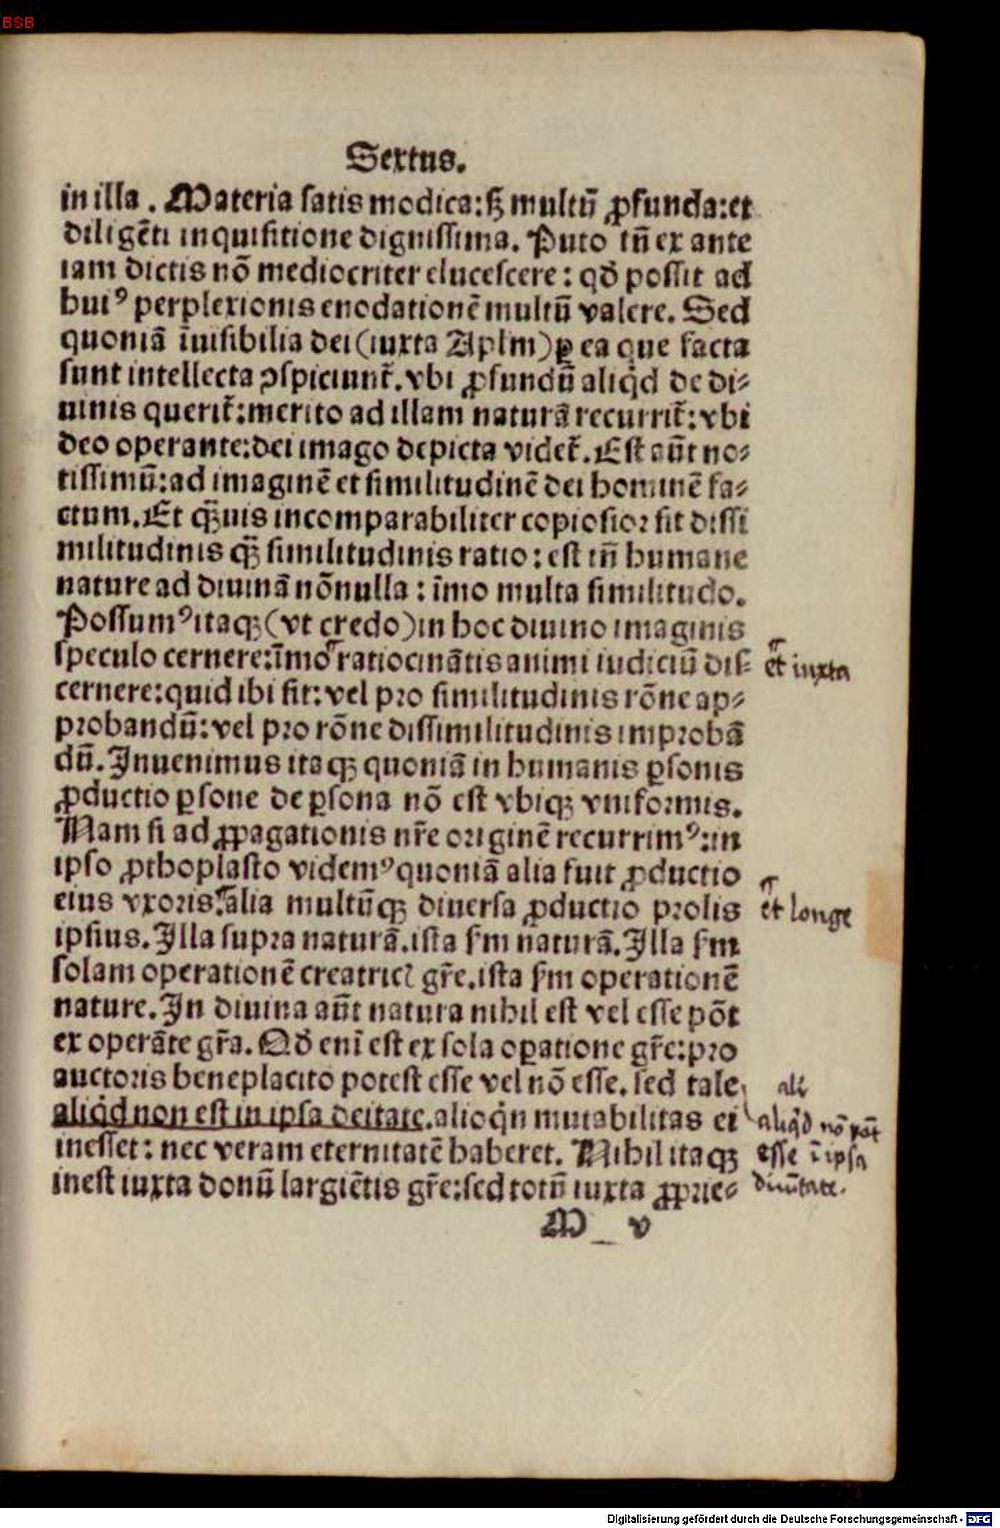 BSB
Sextus.
in illa. Materia satis modica:ſꝫ multũ ꝓfunda:et
diligẽti inquisitione dignissima. Puto tñ ex ante
iam dictis nõ mediocriter elucescere: qđ possit ad
huiꝰ perplexionis enodationẽ multũ valere. Sed
quoniã ĩuisibilia dei(iuxta Aplm)ꝑ ea que facta
sunt intellecta ꝯspiciunt̃. vbi ꝓfundũ aliqd̓ de di⸗
uinis querit̃:merito ad illam naturã recurrit̃:vbi
deo operante:dei imago depicta videt̃. Est aũt no⸗
tissimũ:ad imaginẽ et similitudinẽ dei hominẽ fa⸗
ctum. Et q̃uis incomparabiliter copiosior sit dissi
militudinis q̃ similitudinis ratio: est tñ humane
nature ad diuinã nõnulla: ĩmo multa similitudo.
Possumꝰ itaqꝫ(vt credo)in hoc diuino imaginis
speculo cernere:ĩmo ratiocinãtis animi iudiciũ dis⸗ et iuxta
cernere:quid ibi sit: vel pro similitudinis rõne ap⸗
probandũ: vel pro rõne dissimilitudinis improbã
dũ. Inuenimus itaqꝫ quoniã in humanis ꝑsonis
ꝓductio ꝑsone de ꝑsona nõ est vbiqꝫ vniformis.
Nam si ad ꝓpagationis nr̃e originẽ recurrimꝰ:in
ipso ꝓthoplasto videmꝰ quoniã alia fuit ꝓductio
eius vxoris: alia multũqꝫ diuersa ꝓductio prolis et longe
ipsius. Illa supra naturã. ista ſm naturã. Illa ſm
solam operationẽ creatricꝭ gr̃e. ista ſm operationẽ
nature. In diuina aũt natura nihil est vel esse põt
ex operãte gr̃a. Qđ enĩ est ex sola oꝑatione gr̃e: pro
auctoris beneplacito potest esse vel nõ esse. sed tale ali
aliqd̓ non est in ipsa deitate. alioqñ mutabilitas ei aliqd̓ nõ põt
inesset: nec veram eternitatẽ haberet. Nihil itaqꝫ esse ĩ ipsa
inest iuxta donũ largiẽtis gr̃e: sed totũ iuxta ꝓprie⸗ diuĩtate.
M v
Digitalisierung gefördert durch die Deutsche Forschungsgemeinschaft - DFG